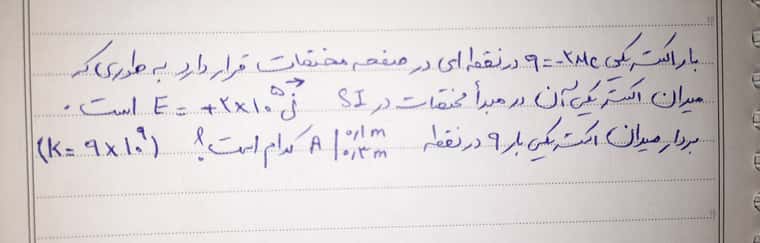 بار الکتریکی q=-2μc در نقطه ای در صفحه مختصات قرار دارد به طوری که
میدان الکتریکی آن در مبدأ مختصات در SI E = +2×10^5 j⃗ است.
بردار میدان الکتریکی بار q در نقطه A |0/1m 0/3m کدام است؟ (K=9×10^9)